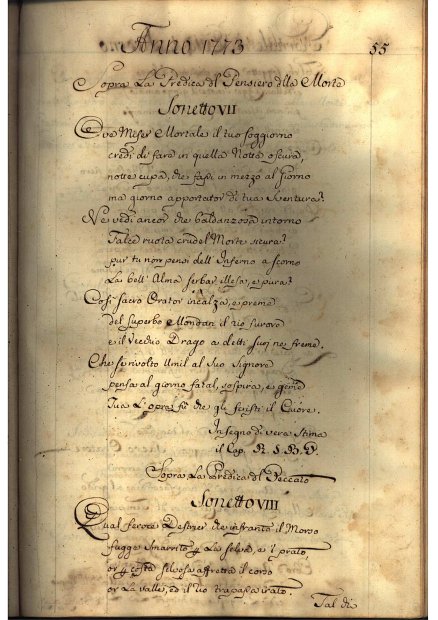 Anno 1773
55
Sopra La Predica del Pensiero della Morte
Sonetto VII
Ove Miser Mortale il tuo soggiorno
credi di fare in quella Notte oscura,
notte cupa, che fassi in mezzo al Giorno
ma giorno apportator di tua Sventura?
Ne vedi ancor che baldanzosa intorno
Falce ruota crudel Morte sicura?
pur tu non pensi dell' Inferno a scorno
La bell' Alma serbar illesa, e pura?
Cosi sacro Orator incalza, e preme
del superbo Mondan il rio furore
e il Vecchio Drago a detti suoi ne freme.
Che se rivolto Umil al Suo Signore
pensa al giorno fatal, sospira, e geme
Tua L'opra fu che gli feristi il Cuore.
In segno di vera Stima
il Cap.
Sopra La Predica del Peccato
Sonetto VIII
Qual feroce Destrier che infranto il Morso
fugge Smarrito La selva, e 'l prato,
or selvosa affretta il corso
or La valle, ed il rio trapassa irato.
Tal di